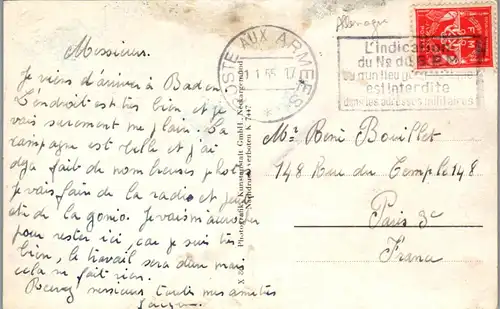 Messieurs.
Je viens d'arriver à Baden
L'endroit est très bien et je
vais surement me plaire. La
campagne est belle et j'ai
déja fait de nombreuses photos
Je vais faire de la radio et
de la gonio. Je vais m'arranger
pour rester ici, car je suis très
bien, le travail sera dur mais
cela ne fait rien.
Recevez messieurs toutes mes amitiés
Photografie Kunstanstalt GmbH., Neckargemünd
Nachdruck verboten K 7447
POSTE AUX ARMEES
1.55 17
L'indication
du No du S.P. ou
du lieu
est interdite
dans les adresses militaires
F M
Mr René Bouillet
148 Rue du Temple 148
Paris 3e
France